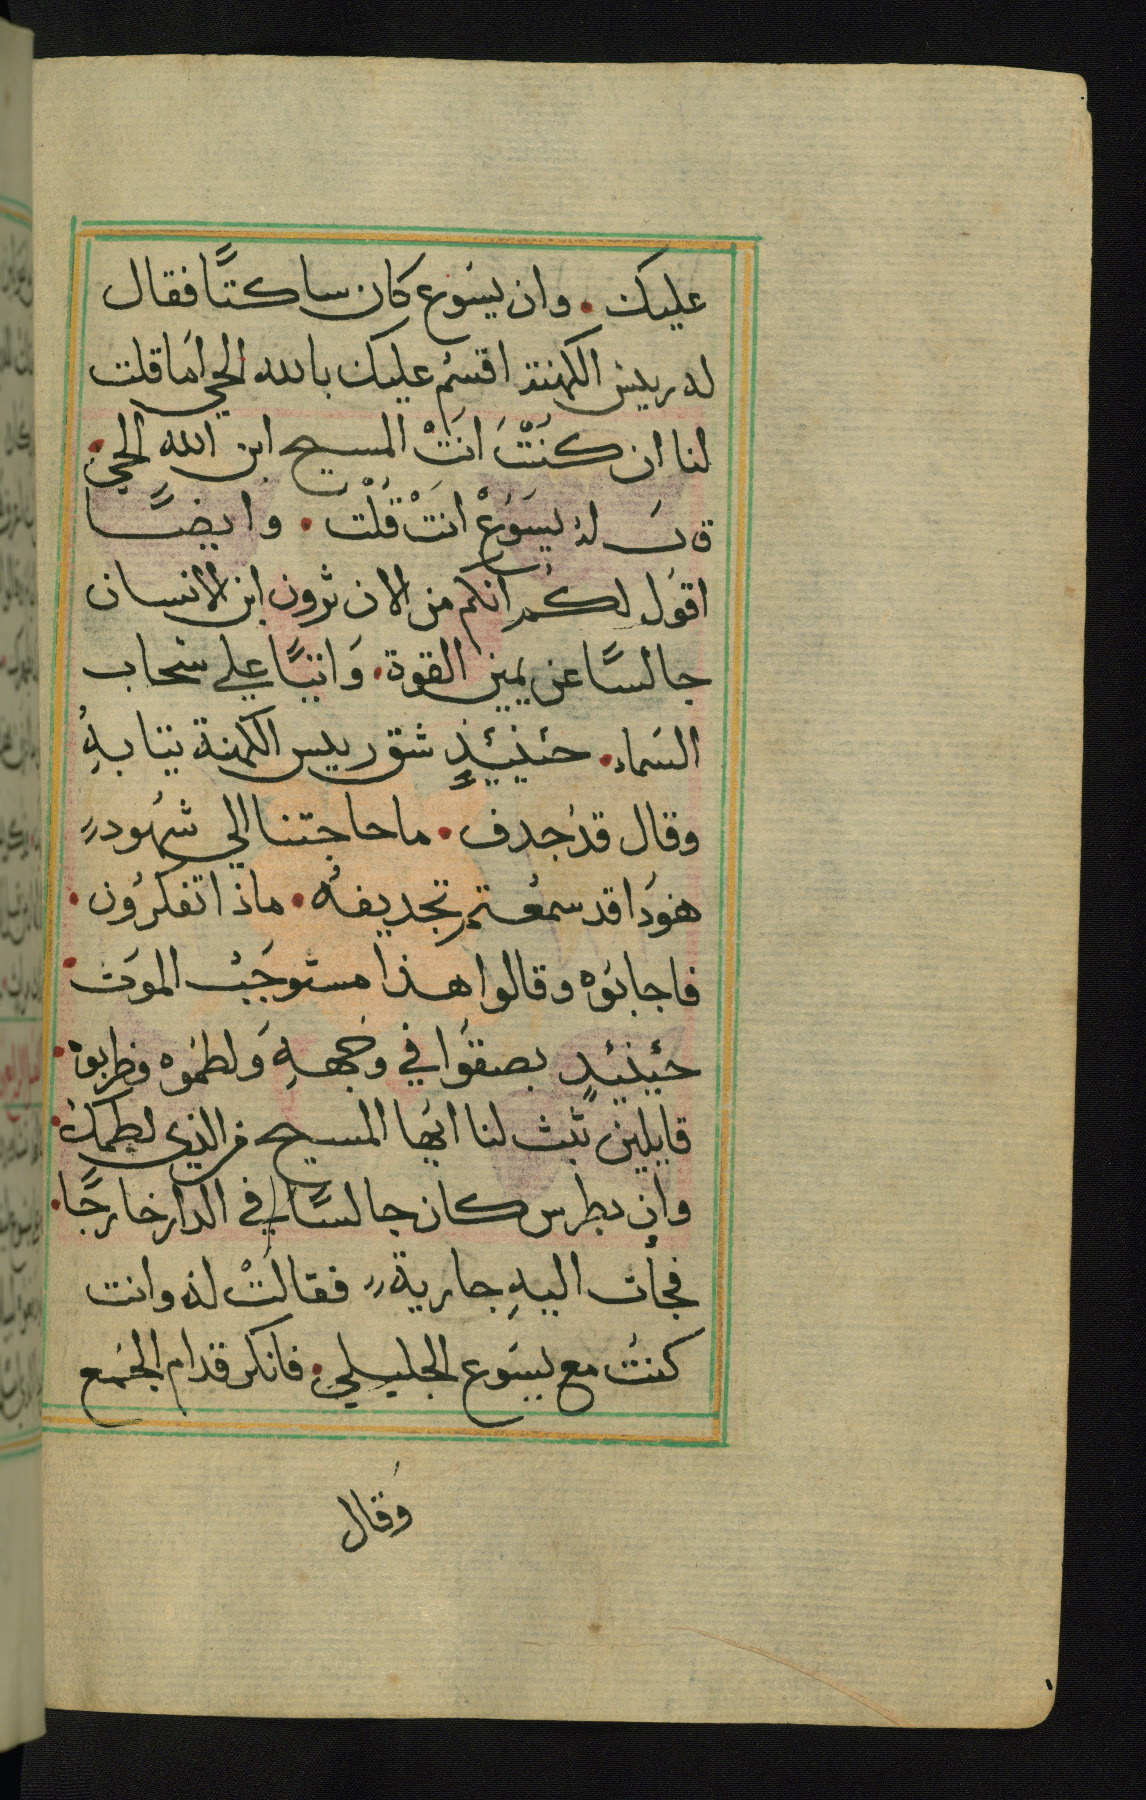 عليك . وان يسوع كان ساكتًا فقال
له رييس الكهنة اقسم عليك بالله الحي اما قلت
لنا ان كنت انت المسيح ابن الله الحي .
قال له يسوع انت قلت . وايضًا
اقول لكم انكم من الان ترون ابن الانسان
جالسًا عن يمين القوة . واتيًا علي سحاب
السماء . حينيئذٍ شق رييس الكهنة ثيابه
وقال قد جدف . ما حاجتنا الي شهود
هوذا قد سمعتم تجديفه . ماذا تفكرون .
فاجابوه وقالوا هذا مستوجب الموت .
حينيئدٍ بصقوا في وجهه ولطموه وضربوه .
قايلين تنبث لنا ايها المسيح من الذي لطمك .
وان بطرس كان جالسًا في الدار خارجًا .
فجأت اليه جارية فقالت له وانت
كنت مع يسوع الجليلي . فانكر قدام الجمع
وقال